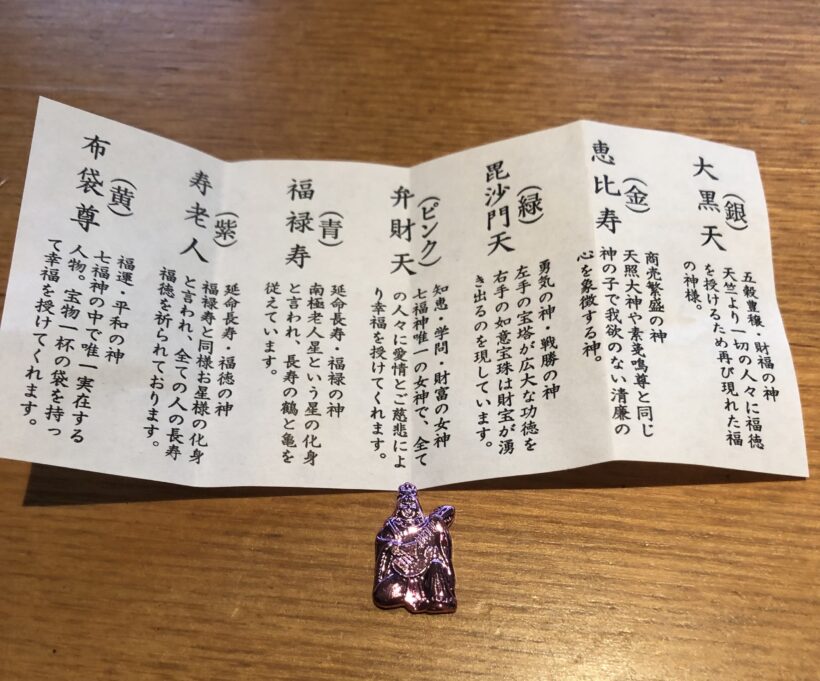 大黒天
(銀)
五穀豊穣・財福の神
天竺より一切の人々に福徳
を授けるため再び現れた福
の神様。
恵比寿
(金)
商売繁盛の神
天照大神や素戔嗚尊と同じ
神の子で我欲のない清廉の
心を象徴する神。
毘沙門天
(緑)
勇気の神・戦勝の神
左手の宝塔が広大な功徳を
右手の如意宝珠は財宝が湧
き出るのを現しています。
弁財天
(ピンク)
知恵・学問・財富の女神
七福神唯一の女神で、全て
の人々に愛情とご慈悲によ
り幸福を授けてくれます。
福禄寿
(青)
延命長寿・福禄の神
南極老人星という星の化身
と言われ、長寿の鶴と亀を
従えています。
寿老人
(紫)
延命長寿・福徳の神
福禄寿と同様お星様の化身
と言われ、全ての人の長寿
福徳を祈られております。
布袋尊
(黄)
福運・平和の神
七福神の中で唯一実在する
人物。宝物一杯の袋を持っ
て幸福を授けてくれます。